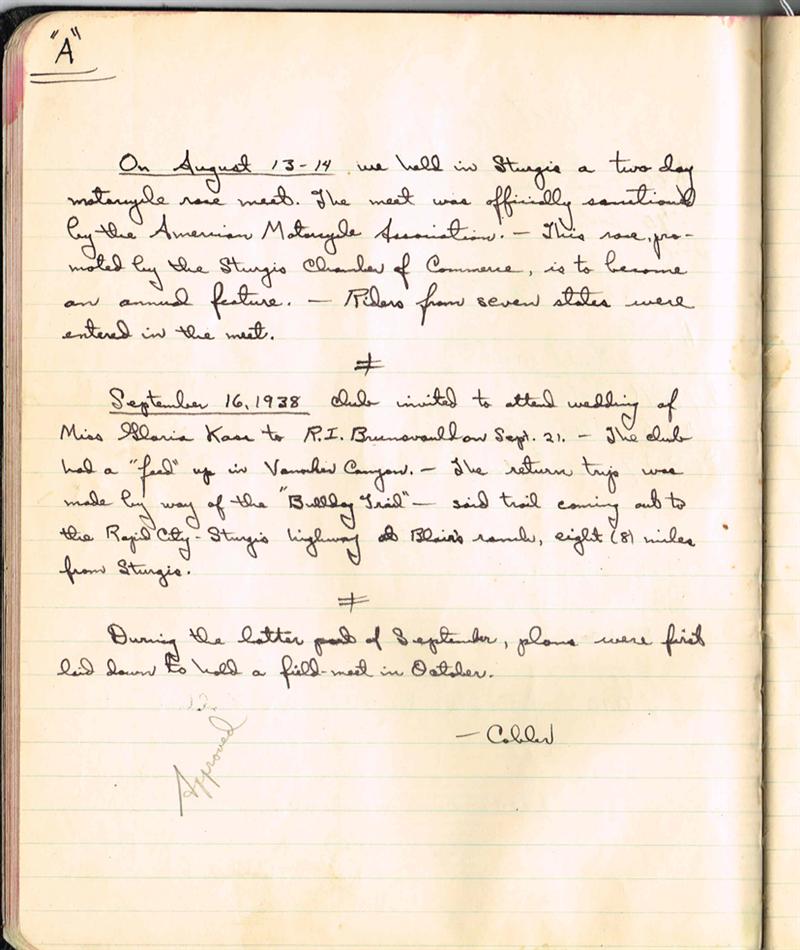 "A"
On August 13-14 we held in Sturgis a two day
motorcycle race meet. The meet was officially sanctioned
by the American Motorcycle Association. — This race, pro-
moted by the Sturgis Chamber of Commerce, is to become
an annual feature. — Riders from seven states were
entered in the meet.
≠
September 16, 1938 club invited to attend wedding of
Miss Gloria Kaar to R.I. Brunsvauld on Sept. 21. — The club
had a "feed" up in Vanocker Canyon. — The return trip was
made by way of the "Bulldog Trail" — said trail coming out to
the Rapid City - Sturgis highway at Blair's ranch, eight (8) miles
from Sturgis.
≠
During the latter part of September, plans were first
laid down to hold a field-meet in October.
— Cobler
Approved